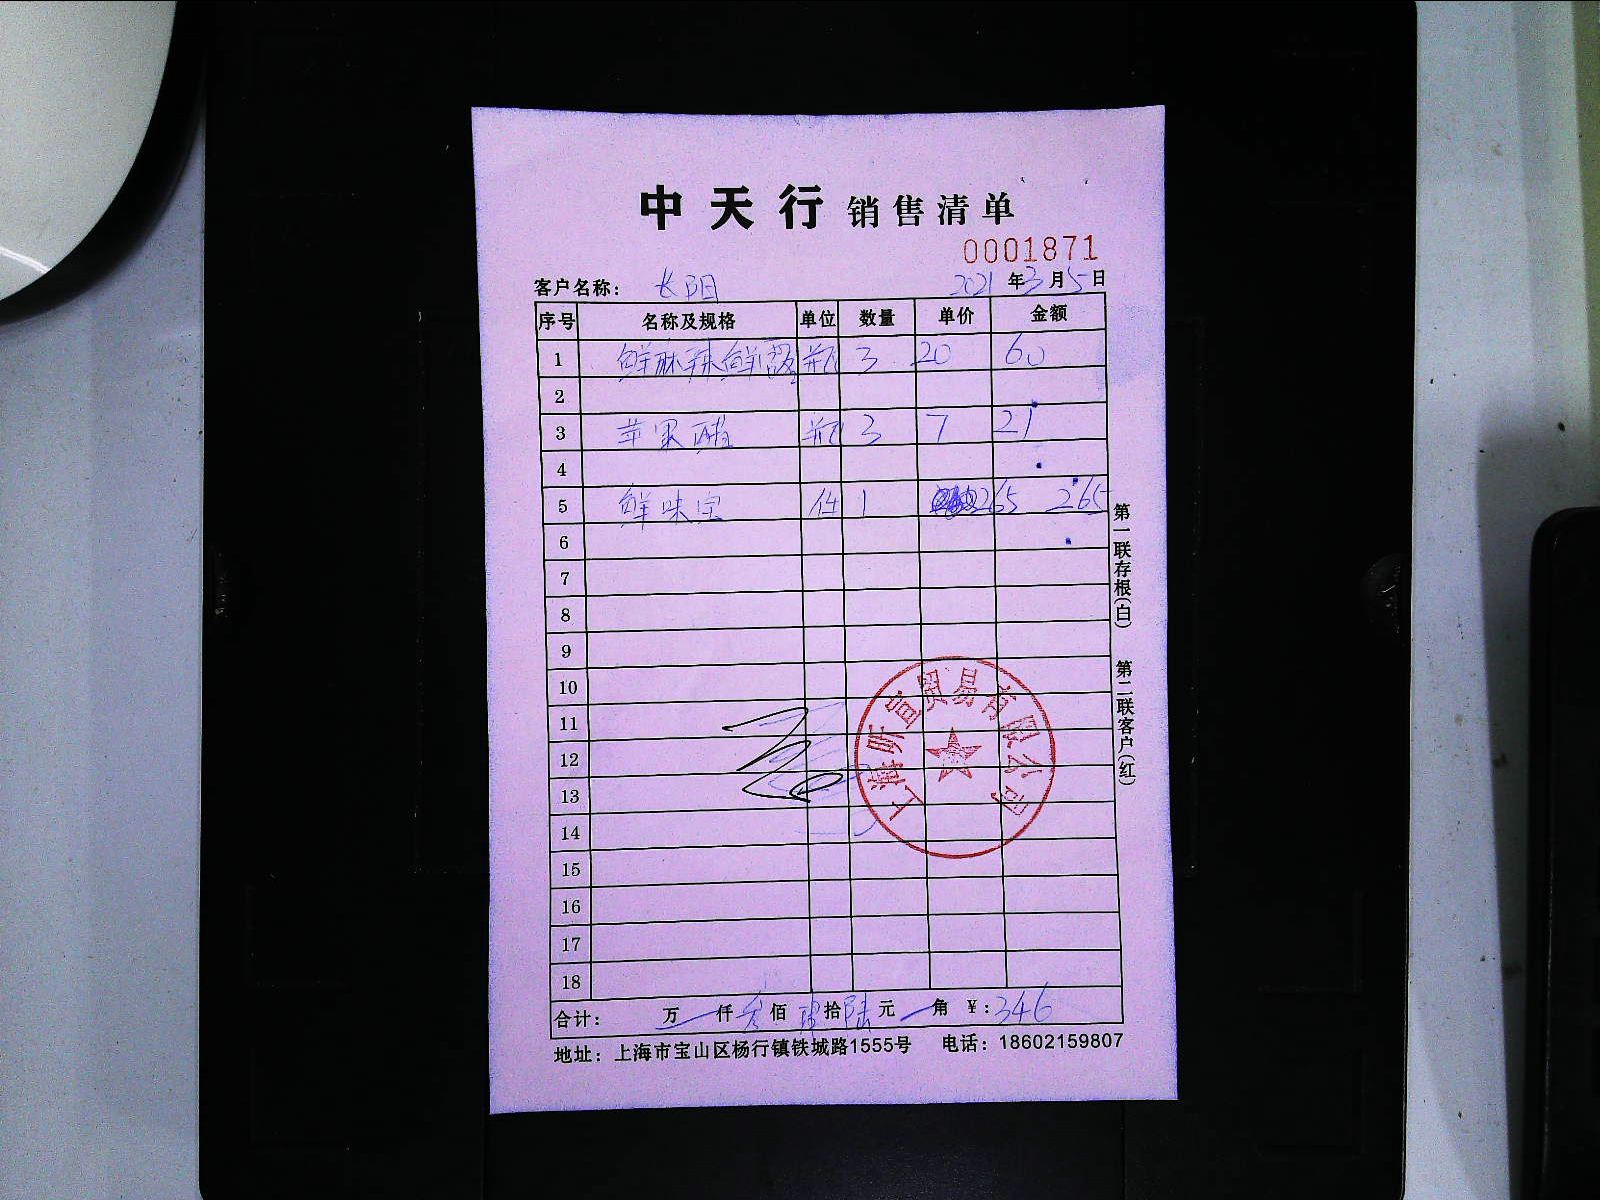 中天行 销售清单
0001871
客户名称： 长阳 2021年3月5日
序号 名称及规格 单位 数量 单价 金额
1 鲜麻辣鲜露 瓶 3 20 60
2
3 苹果醋 瓶 3 7 21
4
5 鲜味宝 件 1 265 265
6
7
8
9
10
11
12
13
14
15
16
17
18
上海昕宣贸易有限公司
合计： 万 仟 叁佰 肆拾 陆元 角 ￥：346
地址：上海市宝山区杨行镇铁城路1555号 电话：18602159807
第一联存根（白） 第二联客户（红）